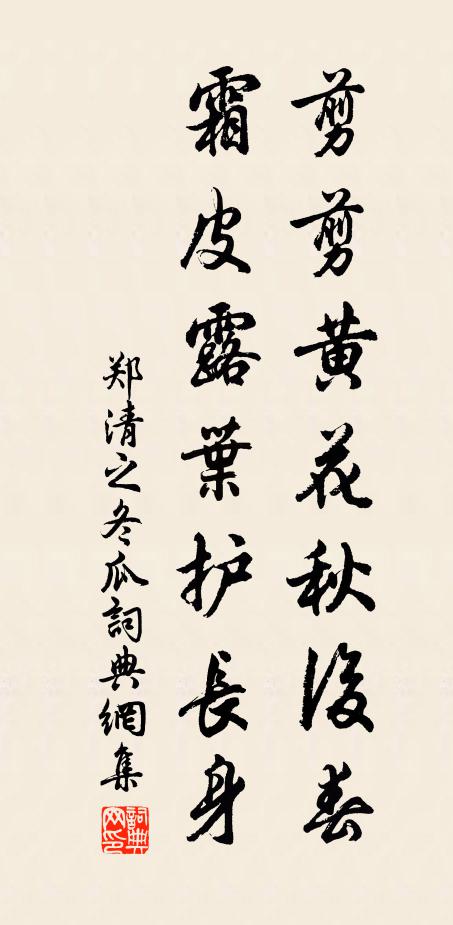 剪剪黄花秋後春
霜皮露葉护長身
郑清之冬瓜詞典網集
詞典网印